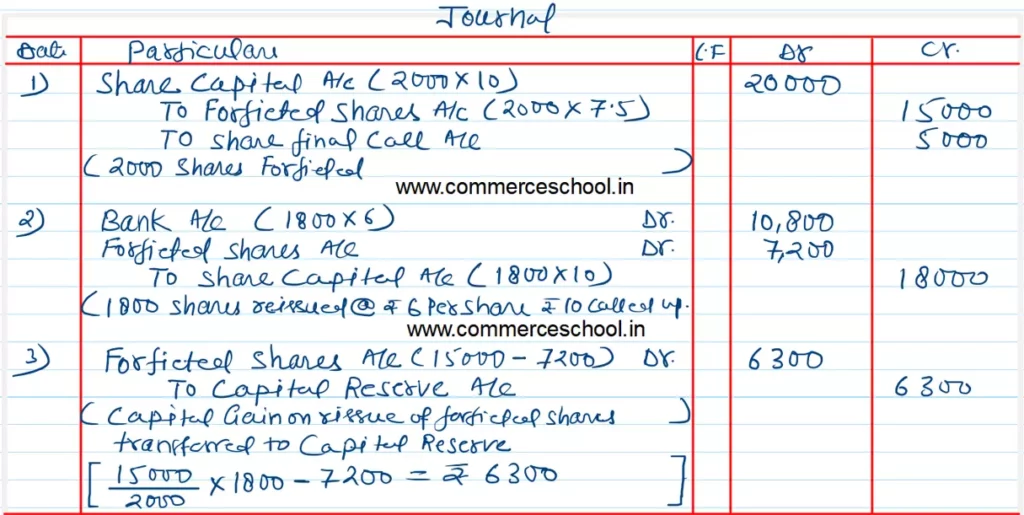 Journal
Date Particulars L.F Dr Cr.
1) Share Capital A/c (2000 X 10) 20000
To Forficted Shares A/c (2000 X 7.5) 15000
To share final Call A/c 5000
(2000 Shares Forficted )
www.commerceschool.in
2) Bank A/c (1800 X 6) Dr. 10,800
Forficted shares A/c Dr. 7,200
To share Capital A/c (1800 X 10) 18000
(1800 shares reissued @ ₹ 6 Per share ₹ 10 called up.
www.commerceschool.in
3) Forficted shares A/c (15000 - 7200) Dr. 6300
To Capital Reserve A/c 6300
(Capital Gain on rissue of forficted shares )
transferred to Capital Reserve
[ 15000/2000 X 1800 - 7200 = ₹ 6300 ]